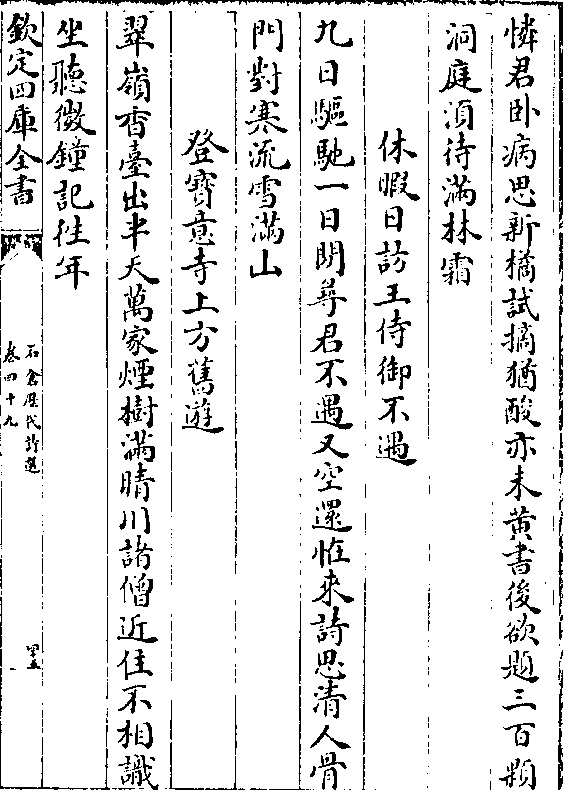 憐君卧病思新橘試摘猶酸亦未黄書後欲題三百顆
洞庭湏待滿林霜
休暇日訪王侍御不遇
九日驅馳一日閒尋君不遇又空還怪來詩思清人骨
門對寒流雪滿山
登寶意寺上方舊遊
翠嶺香臺出半天萬家煙樹滿晴川諸僧近住不相識
坐聽微鐘記徃年
欽定四庫全書
石倉歴代詩選
卷四十九
四五